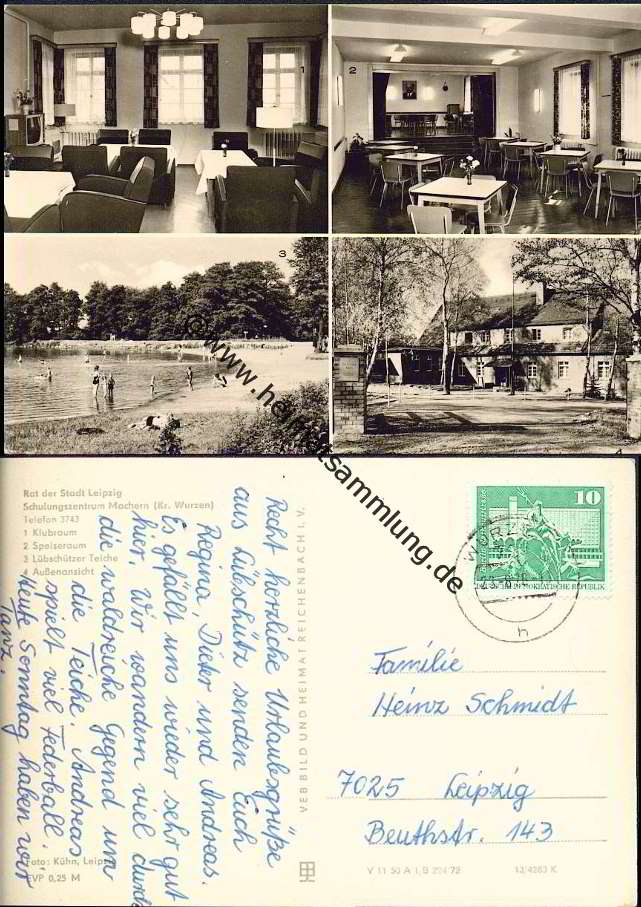 1
2
3
4
www.heimatsammlung.de
Rat der Stadt Leipzig
Schulungszentrum Machern (Kr. Wurzen)
Telefon 3743
1 Klubraum
2 Speiseraum
3 Lübschützer Teiche
4 Außenansicht
Recht herrliche Urlaubsgrüße
aus Lübschütz senden Euch
Regina, Dieter und Andreas.
Es gefällt uns wieder sehr gut
hier. Wir wandern viel durch
die waldreiche Gegend um
die Teiche. Andreas
spielt viel Federball.
Heute Sonntag haben wir
Tanz.
Foto: Kühn, Leipzig
EVP 0,25 M
VEB BILD UND HEIMAT REICHENBACH I. V.
10
DEUTSCHE DEMOKRATISCHE REPUBLIK
Familie
Heinz Schmidt
7025 Leipzig
Beuthstr. 143
V 11 50 A 1, B 224/72
13/4263 K